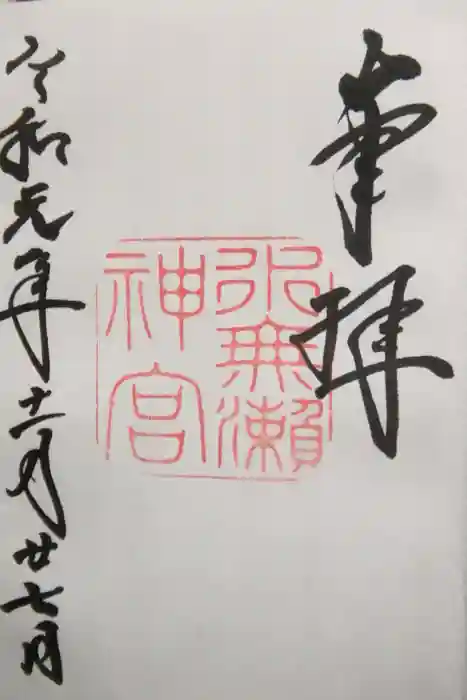 奉拝
水無瀬
神宮
令和元年十一月廿七日